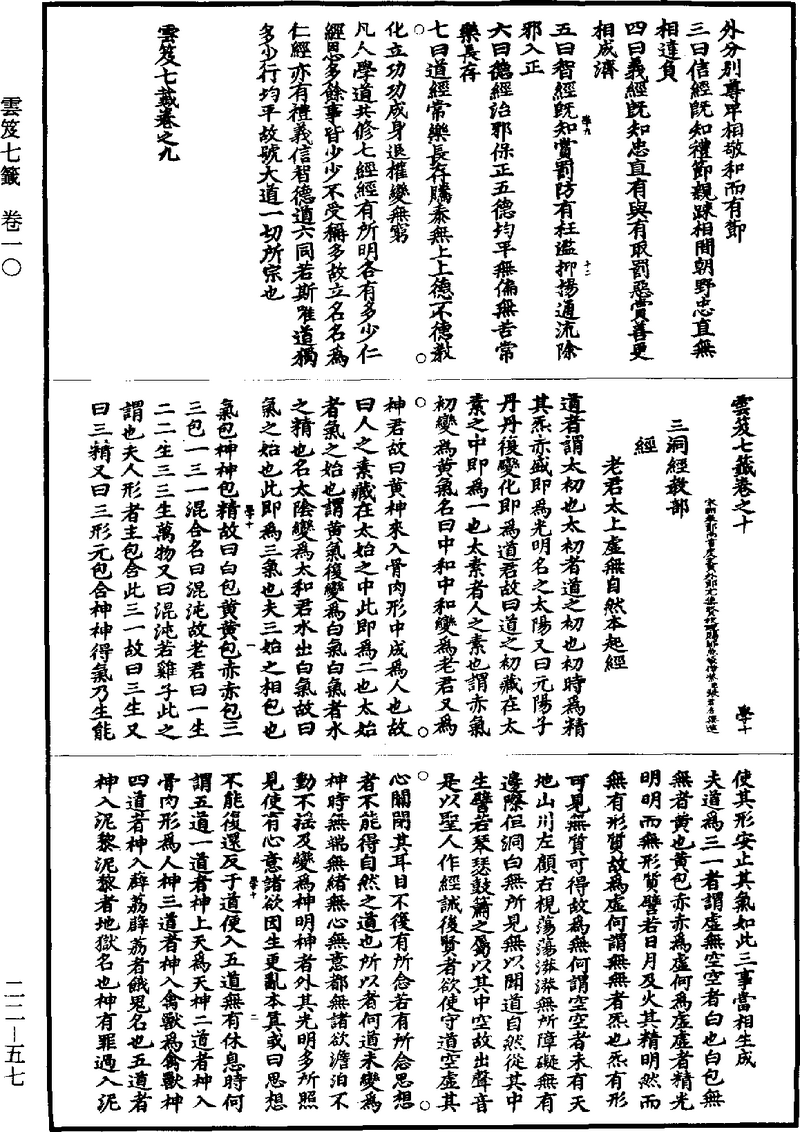 雲笈七籤 卷一〇
二二—五七
外分別尊卑相敬和而有節
三曰信經既知禮節親疎相間朝野忠直無
相違負
四曰義經既知忠直有與有取罰惡賞善更
相成濟
五曰智經既知賞罰防有枉濫抑揚通流除
邪入正
六曰德經治邪保正五德均平無偏無苦常
樂長存
七曰道經常樂長存騰泰無上上德不德教
化立功功成身退權變無窮
凡人學道共修七經經有所明各有多少仁
經恩多餘事皆少少不受稱多故立名名為
仁經亦有禮義信智德道六同若斯唯道獨
多少行均平故號大道一切所宗也
雲笈七籤卷之九
學九
十二
雲笈七籤卷之十
學十
三洞經教部
經
老君太上虛無自然本起經
道者謂太初也太初者道之初也初時為精
其炁赤盛即為光明名之太陽又曰元陽子
丹丹復變化即為道君故曰道之初藏在太
素之中即為一也太素者人之素也謂赤氣
初變為黃氣名曰中和中和變為老君又為
神君故曰黃神來入骨肉形中成為人也故
曰人之素藏在太始之中此即為二也太始
者氣之始也謂黃氣復變為白氣白氣者水
之精也名太陰變為太和君水出白氣故曰
氣之始也此即為三氣也夫三始之相包也
學十
一
氣包神神包精故曰白包黃黃包赤赤包三
三包一三一混合名曰混沌故老君曰一生
二二生三三生萬物又曰混沌若雞子此之
謂也夫人形者主包含此三一故曰三生又
曰三精又曰三形元包合神神得氣乃生能
使其形安止其氣如此三事當相生成
夫道為三一者謂虛無空空者白也白包無
無者黃也黃包赤赤為虛何為虛虛者精光
明明而無形質譬若日月及火其精明然而
無有形質故為虛何謂無無者炁也炁有形
可見無質可得故為無何謂空空者未有天
地山川左顧右視蕩蕩漭漭無所障礙無有
邊際但洞白無所見無以聞道自然從其中
生譬若琴瑟鼓簫之屬以其中空故出聲音
是以聖人作經誡後賢者欲使守道空虛其
心關閉其耳目不復有所念若有所念思想
者不能得自然之道也所以者何道未變為
神時無端無緒無心無意都無諸欲澹泊不
動不搖及變為神明神者外其光明多所照
見使有心意諸欲因生更亂本真或曰思想
學十
二
不能復還反于道便入五道無有休息時何
謂五道一道者神上天為天神二道者神入
骨肉形為人神三道者神入禽獸為禽獸神
四道者神入薜荔薜荔者餓鬼名也五道者
神入泥黎泥黎者地獄名也神有罪過入泥